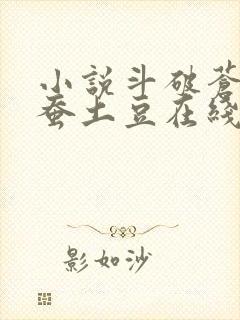 小說斗破蒼
蚕土豆在綫
影如沙